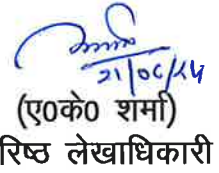 21/06/24
(ए०के० शर्मा)
रिष्ठ लेखाधिकारी